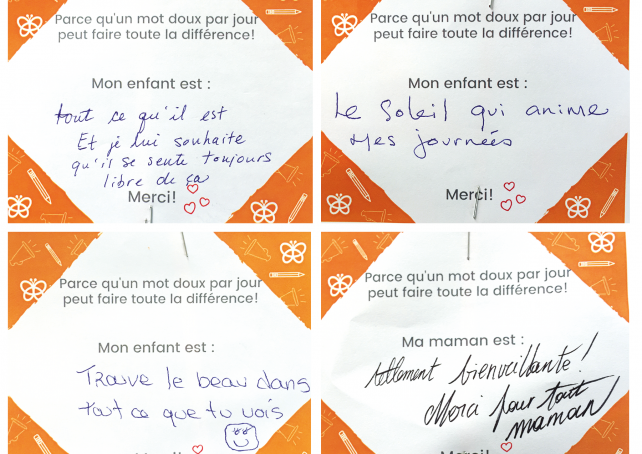 Parce qu'un mot doux par jour
peut faire toute la différence!
Mon enfant est :
tout ce qu'il est
Et je lui souhaite
qu'il se sente toujours
libre de ça
Merci!
Parce qu'un mot doux par jour
peut faire toute la différence!
Mon enfant est :
Le Soleil qui anime
Mes journées
Merci!
Parce qu'un mot doux par jour
peut faire toute la différence!
Mon enfant est :
Trouve le beau dans
tout ce que tu vois
Merci!
Parce qu'un mot doux par jour
peut faire toute la différence!
Ma maman est :
tellement bienveillante!
Merci pour tout
maman
Merci!